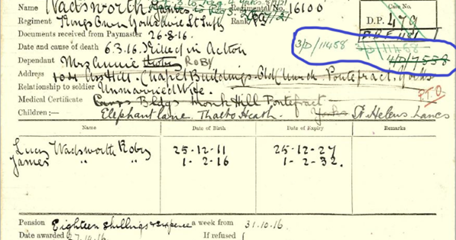 Wadsworth James Regimental No. 16100
Case No.
Regiment King's Own Yorkshire Lt Infty Rank Pte
D.P. 479
Documents received from Paymaster 26-8-16.
Date and cause of death 6.3.16. Killed in Action
3/D/11458
4/D/7838
Dependant Mrs Annie ROBY
Address Hill, Chapel Buildings, Old Church Pontefract, Yorks
Relationship to soldier Unmarried Wife.
P.T.O.
Medical Certificate Bldgs Monk Hill Pontefract
Children:— Elephant Lane, Thatto Heath. Yorks St Helens Lancs
Name Date of Birth Date of Expiry Remarks
Lucy Wadsworth Roby 25-12-11 25-12-27
James " " 1-2-16 1-2-32.
Pension Eighteen shillings & sixpence a week from 31.10.16
Date awarded 7.10.16 If refused